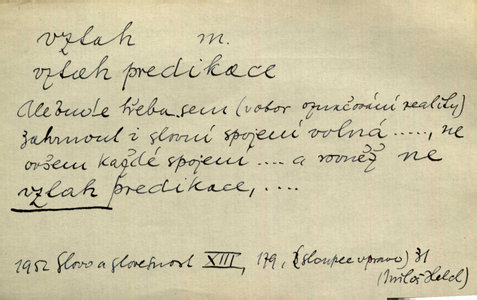 vztah m.
vztah predikace
Ale bude třeba sem (v obor označování reality)
zahrnout i slovní spojení volná ....., ne
ovšem každé spojení .... a rovněž ne
vztah predikace, ....
1952 Slovo a slovesnost XIII, 179, (sloupec vpravo) 31
(Miloš Helcl)